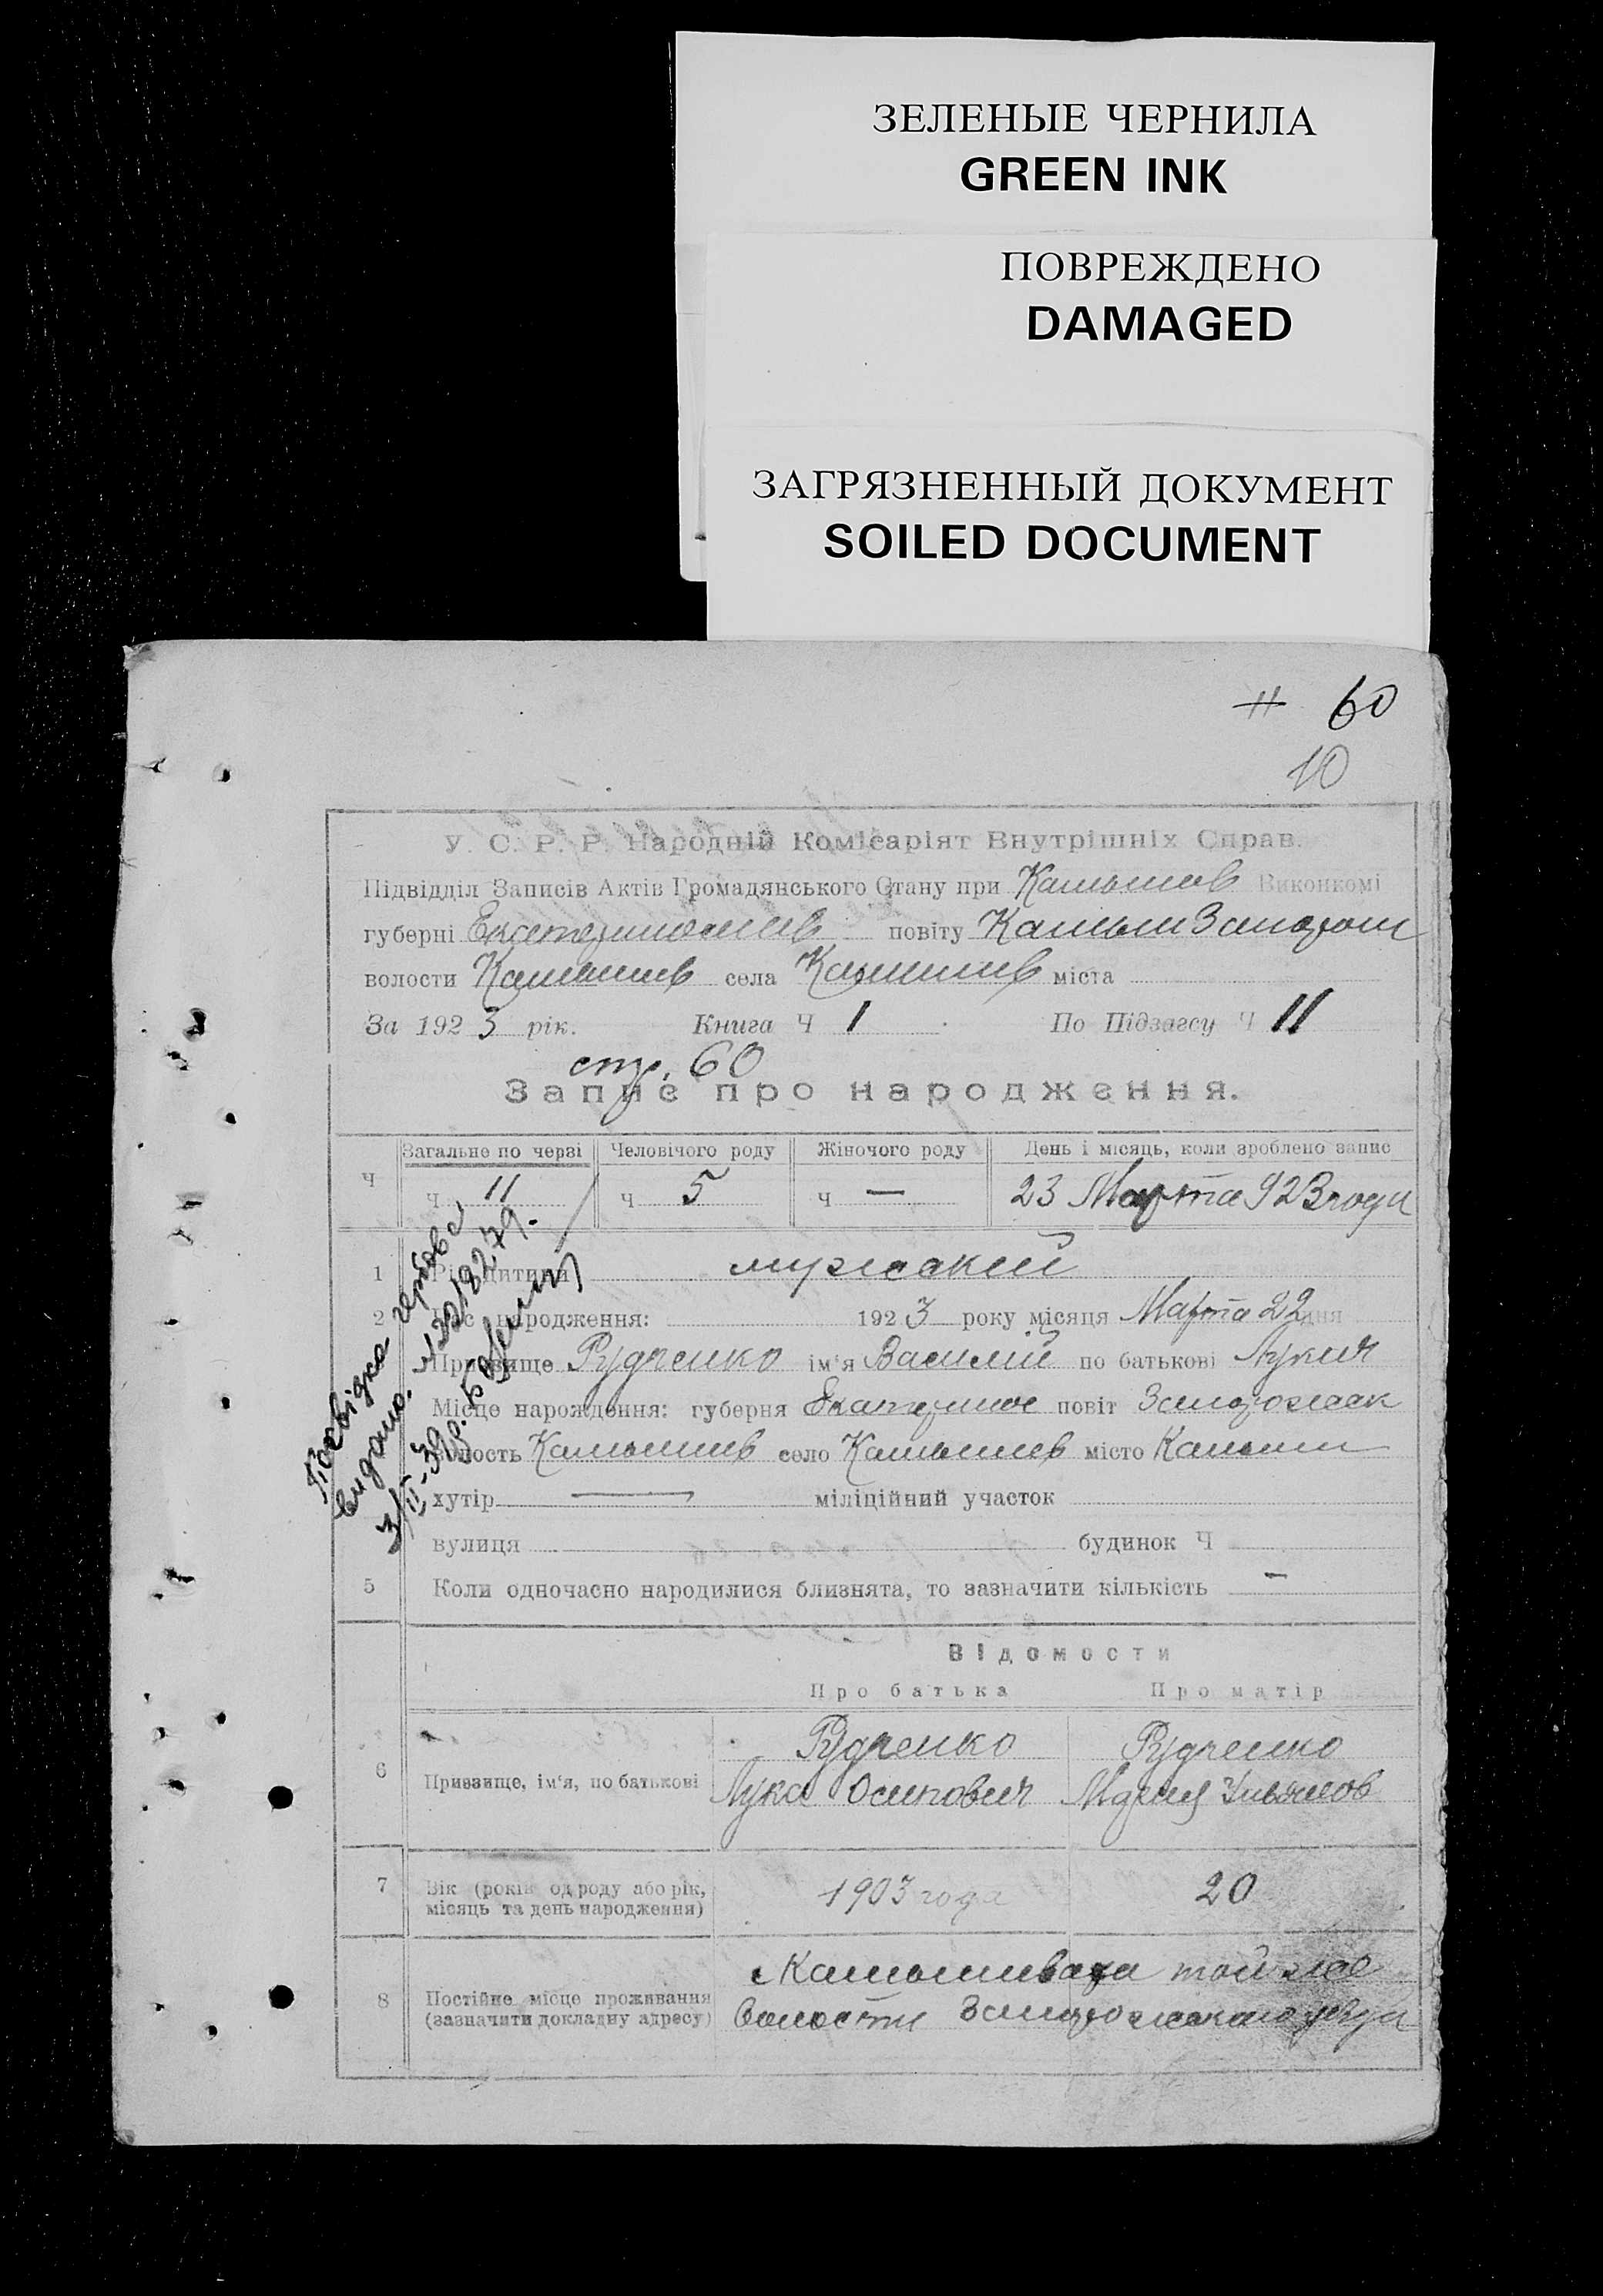 ЗЕЛЕНЫЕ ЧЕРНИЛА
GREEN INK
ПОВРЕЖДЕНО
DAMAGED
ЗАГРЯЗНЕННЫЙ ДОКУМЕНТ
SOILED DOCUMENT
11 60
10
У. С. Р. Р. Народній Комісаріят Внутрішніх Справ.
Підвідділ Записів Актів Громадянського Стану при Камышев Виконкомі
губерні Екатеринослав повіту Запорож
волости Камышев села Камышев міста
За 1923 рік. Книга Ч 1 По Підзагсу Ч 11
стр. 60
Запис про народження.
Ч Загальне по черзі Человічого роду Жіночого роду День і місяць, коли зроблено запис
Ч 11 Ч 5 Ч — 23 Марта 923 года
1 Рід дитини мужской
2 Час народження: 1923 року місяця Марта 22 дня
Прізвище Рудченко ім'я Василий по батькові Лукич
Місце нарождення: губерня Екатеринос повіт Запорожск
волость Камышев село Камышев місто
хутір — міліційний участок
вулиця будинок Ч
5 Коли одночасно народилися близнята, то зазначити кількість —
Посвідка
видано.
Відомости
Про батька Про матір
Рудченко Рудченко
6 Призвище, ім'я, по батькові Лука Осипович Мария
7 Вік (років од роду або рік, 1903 года 20
місяць та день народження)
8 Постійне місце проживання Камышеваха той же
(зазначити докладну адресу) волости Запорожского уезда